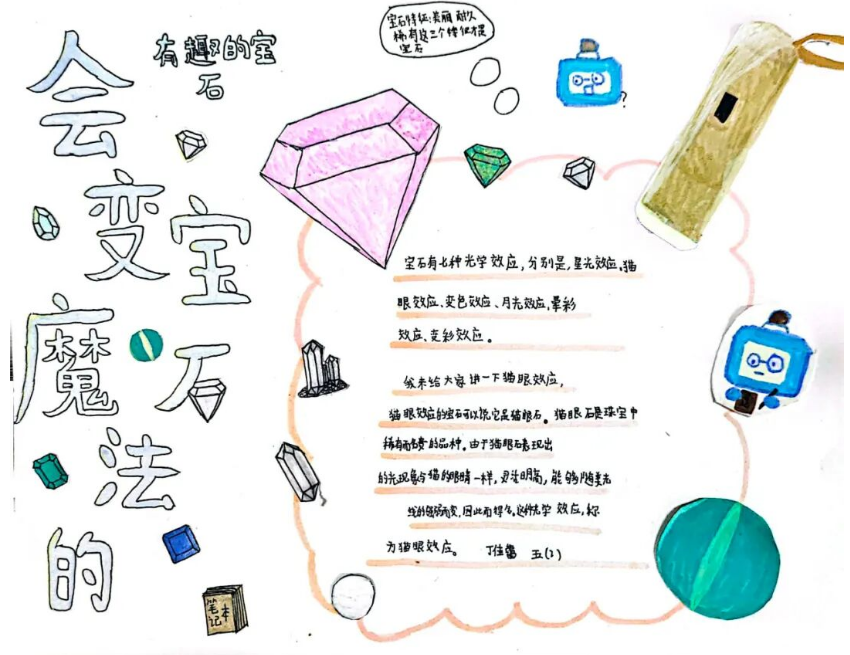 会
变
魔
法
的
宝
石
有趣的宝
石
宝石特征:美丽 耐久
稀有这三个特征才是
宝石
?
宝石有七种光学效应,分别是,星光效应,猫
眼效应、变色效应、月光效应,晕彩
效应、变彩效应。
我来给大家讲一下猫眼效应,
猫眼效应的宝石可以说它是猫眼石。猫眼石是珠宝中
稀有而名贵的品种。由于猫眼石表现出
的光现象与猫的眼睛一样,灵活明亮,能够随着光
线的强弱而变,因此而得名。这种光学效应,称
为猫眼效应。 丁佳 五(1)
笔记本